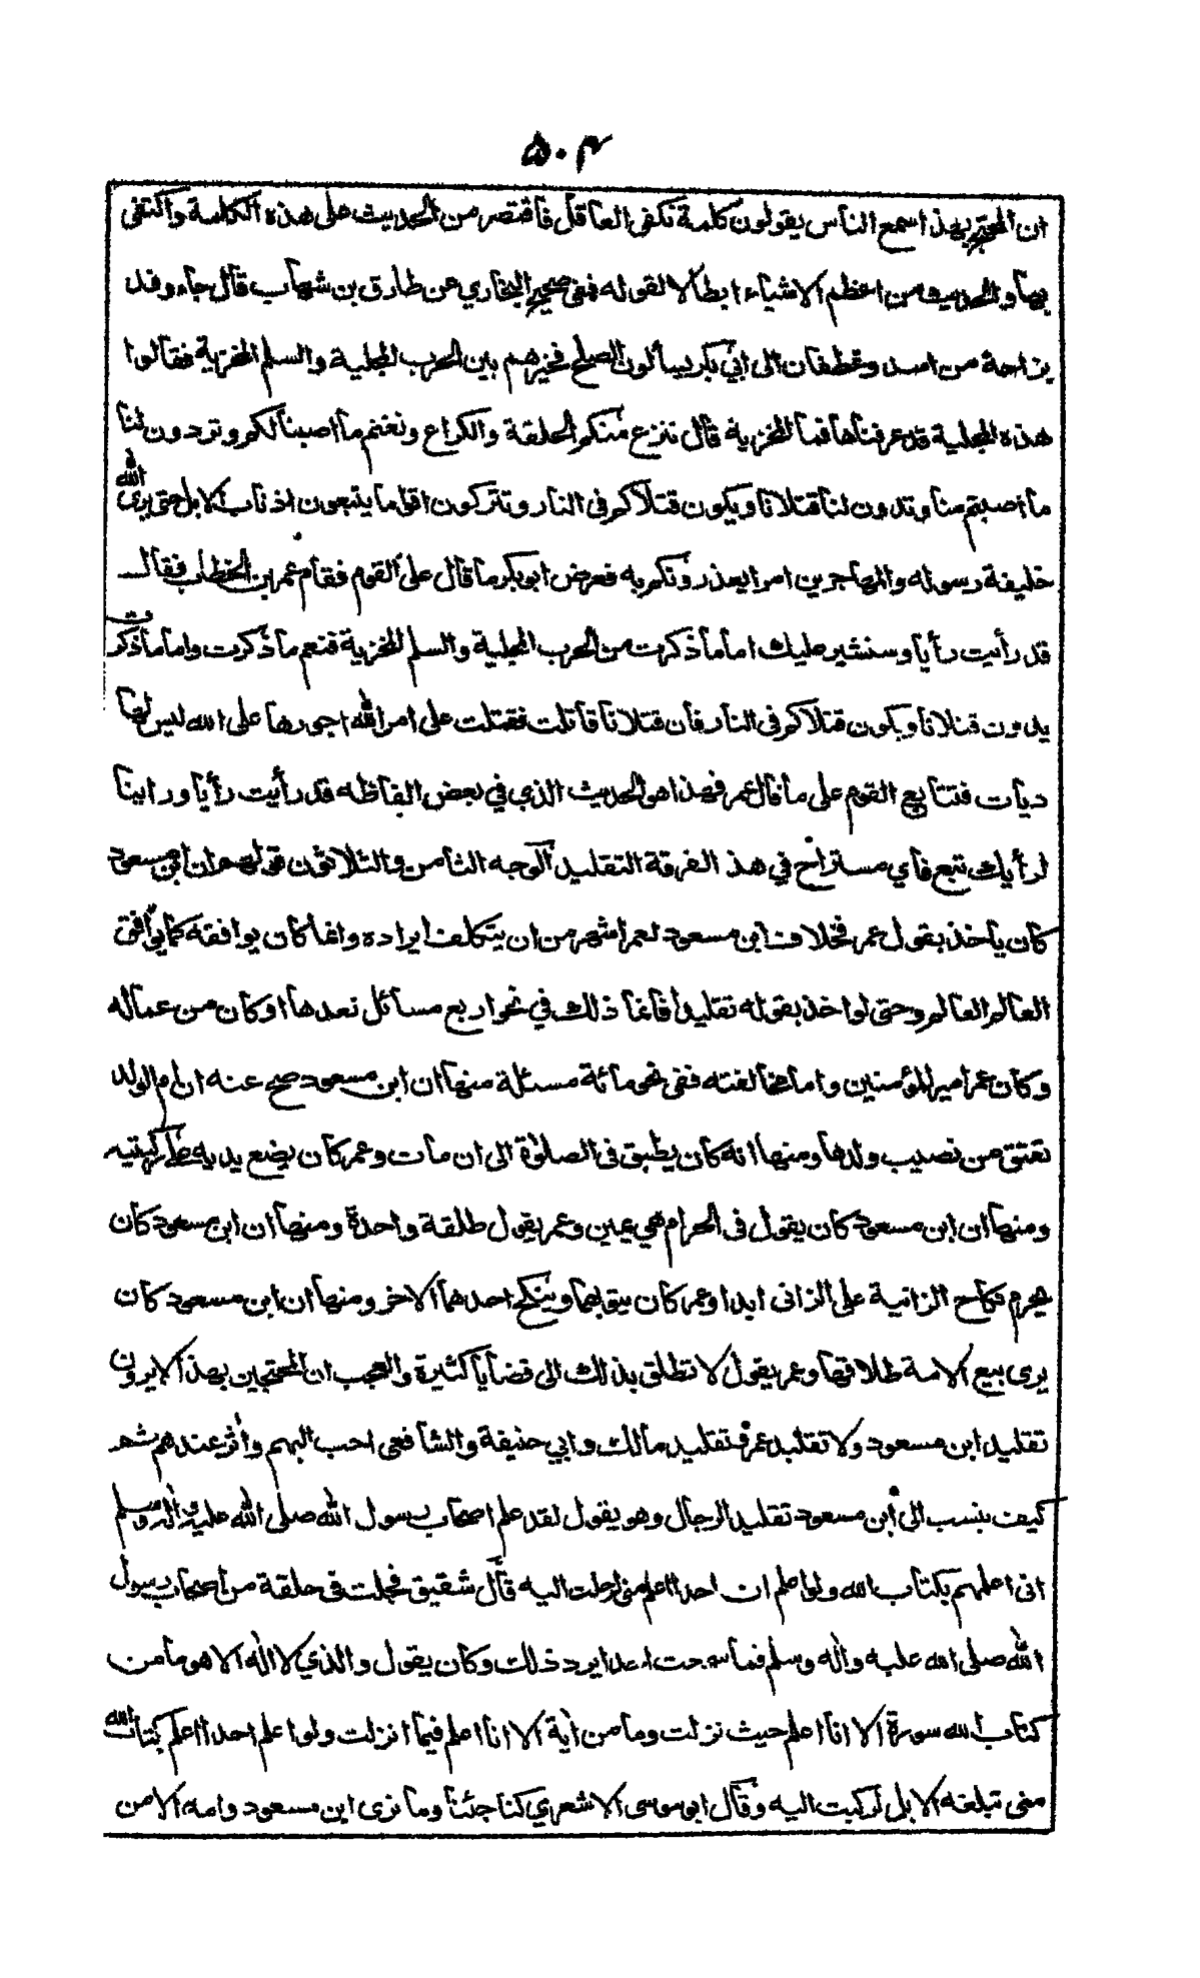 ۵۰۴
ان المحتج بهذا سمع الناس يقولون كلمة تكفى العاقل فاقتصر من الحديث على هذه الكلمة واكتفى
بها والحديث من اعظم الاشياء ابطالا لقوله ففى صحيح البخاري عن طارق بن شهاب قال جاء وفد
بزاحة من اسد وغطفان الى ابي بكر يسألون الصلح فخيرهم بين الحرب المجلية والسلم المخزية فقالوا
هذه المجلية قد عرفناها فما المخزية قال ننزع منكم الحلقة والكراع ونغنم ما اصبنا لكم وتردون لنا
ما اصبتم منا وتدون لنا قتلانا ويكون قتلاكم فى النار وتتركون اقواما يتبعون اذناب الابل حتى يرى الله
خليفة رسوله والمهاجرين امرا يعذرونكم به فعرض ابو بكر ما قال على القوم فقام عمر بن الخطاب فقال
قد رأيت رأيا وسنشير عليك اما ما ذكرت من الحرب المجلية والسلم المخزية فنعم ما ذكرت واما ما ذكرت
يدون قتلانا ويكون قتلاكم فى النار فان قتلانا قاتلت فقتلت على امر الله اجورها على الله ليس لها
ديات فتتابع القوم على ما قال عمر فهذا هو الحديث الذي في بعض الفاظه قد رأيت رأيا وراينا
لرأيك تبع فأي مستراح في هذ الفرقة التقليد الوجه الثامن والثلاثون قولهم ان ابن مسعود
كان يأخذ بقول عمر فخلاف ابن مسعود لعمر اشهر من ان يتكلف ايراده وانما كان يوافقه كما يوافق
العالم العالم وحتى لو اخذ بقوله تقليدا فانما ذلك في نحو اربع مسائل نعدها او كان من عماله
وكان عمر امير المؤمنين واما مخالفته ففى نحو مائة مسئلة منها ان ابن مسعود صح عنه ان ام الولد
تعتق من نصيب ولدها ومنها انه كان يطبق فى الصلوة الى ان مات وعمر كان يضع يديه على ركبتيه
ومنها ان ابن مسعود كان يقول فى الحرام هي يمين وعمر يقول طلقة واحدة ومنها ان ابن مسعود كان
يحرم نكاح الزانية على الزانى ابدا وعمر كان يتوبهما وينكح احدهما الاخر ومنها ان ابن مسعود كان
يرى بيع الامة طلاقها وعمر يقول لا تطلق بذلك الى قضايا كثيرة والعجب ان المحتجين بهذا لا يرون
تقليد ابن مسعود ولا تقليد عمر وتقليد مالك وابي حنيفة والشافعى احب اليهم وأثر عندهم ثم
كيف ينسب الى ابن مسعود تقليد الرجال وهو يقول لقد علم اصحاب رسول الله صلى الله عليه واله وسلم
انى اعلمهم بكتاب الله ولو اعلم ان احدا اعلم منى لرحلت اليه قال شقيق فجلت فى حلقة من اصحاب رسول
الله صلى الله عليه واله وسلم فما سمعت احدا يرد ذلك وكان يقول والذي لا اله الا هو ما من
كتاب الله سورة الا انا اعلم حيث نزلت وما من اية الا انا اعلم فيما انزلت ولو اعلم احدا اعلم بكتاب الله
منى تبلغه الابل لركبت اليه وقال ابو موسى الاشعري كنا جئنا وما نرى ابن مسعود وامه الا من